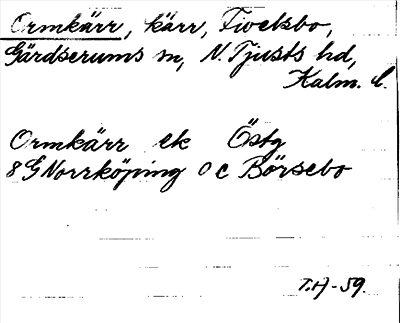 Ormkärr, kärr, Tivelsbo,
Gärdserums sn, N. Tjusts hd,
Kalm. l.
Ormkärr ek Östg
8 G Norrköping 0 c Börsebo
T.H-59.